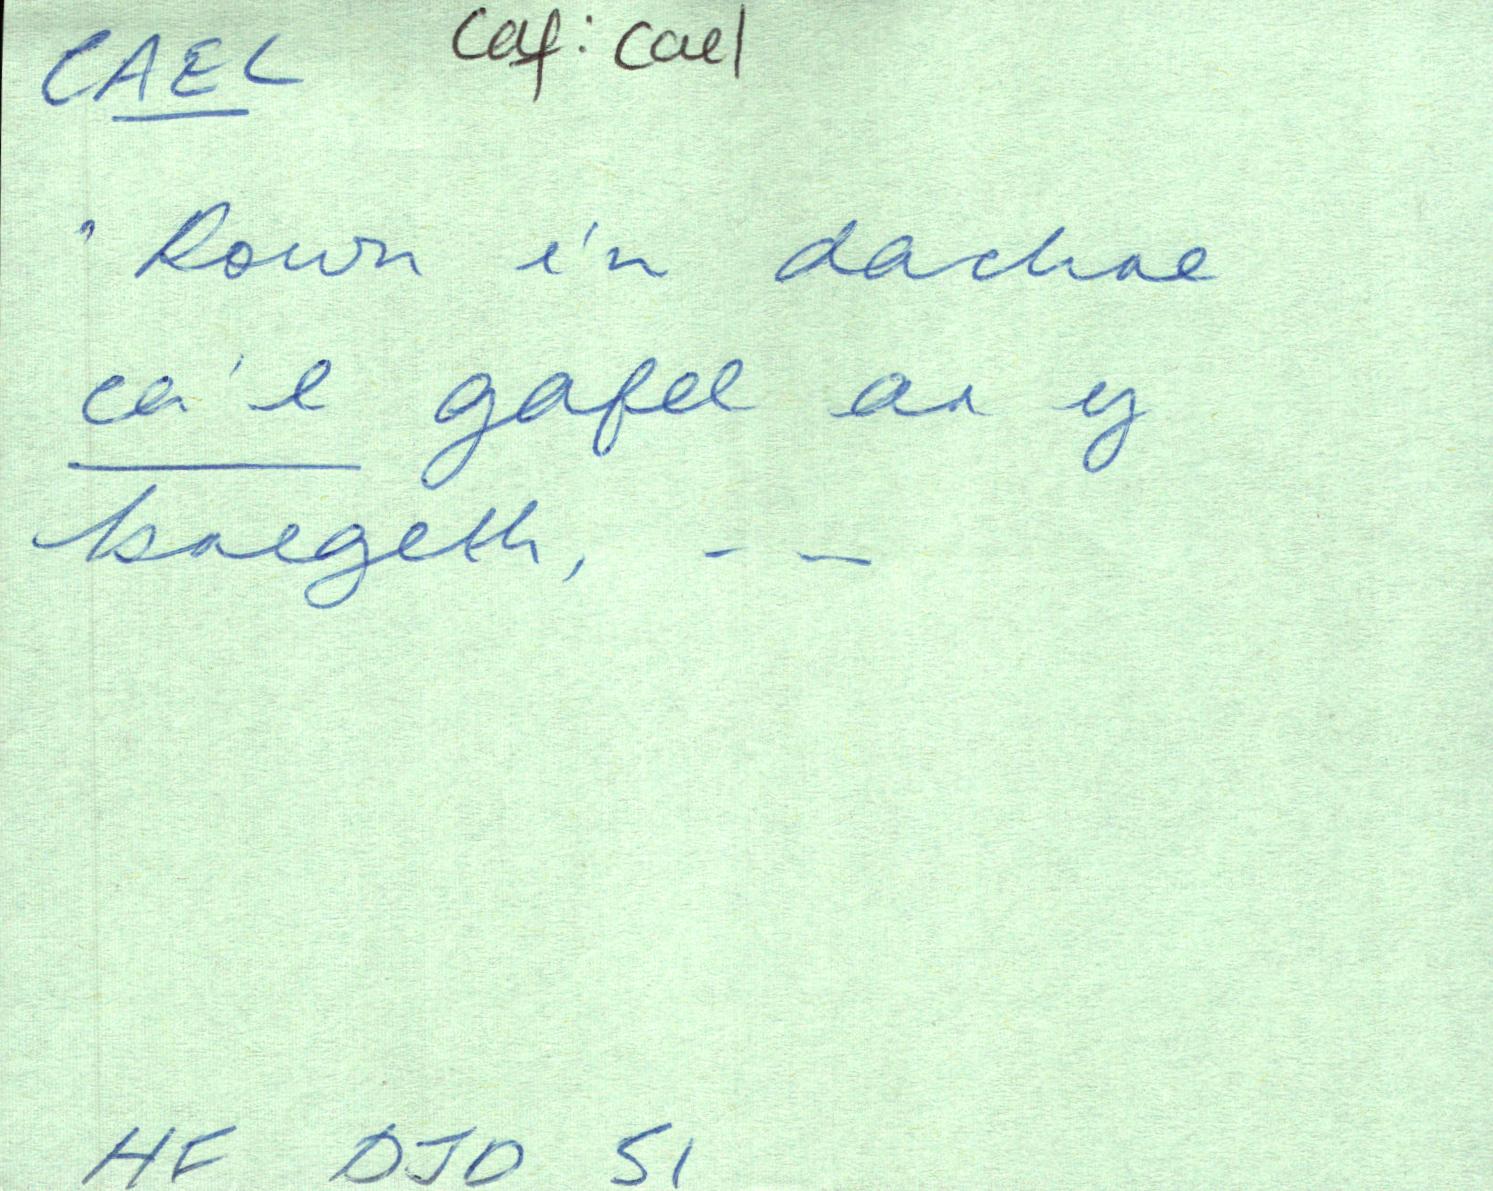 CAEL caf: cael
'Rown i'n dachre
ca'l gafel ar y
bregeth, - —
HF DJD 51